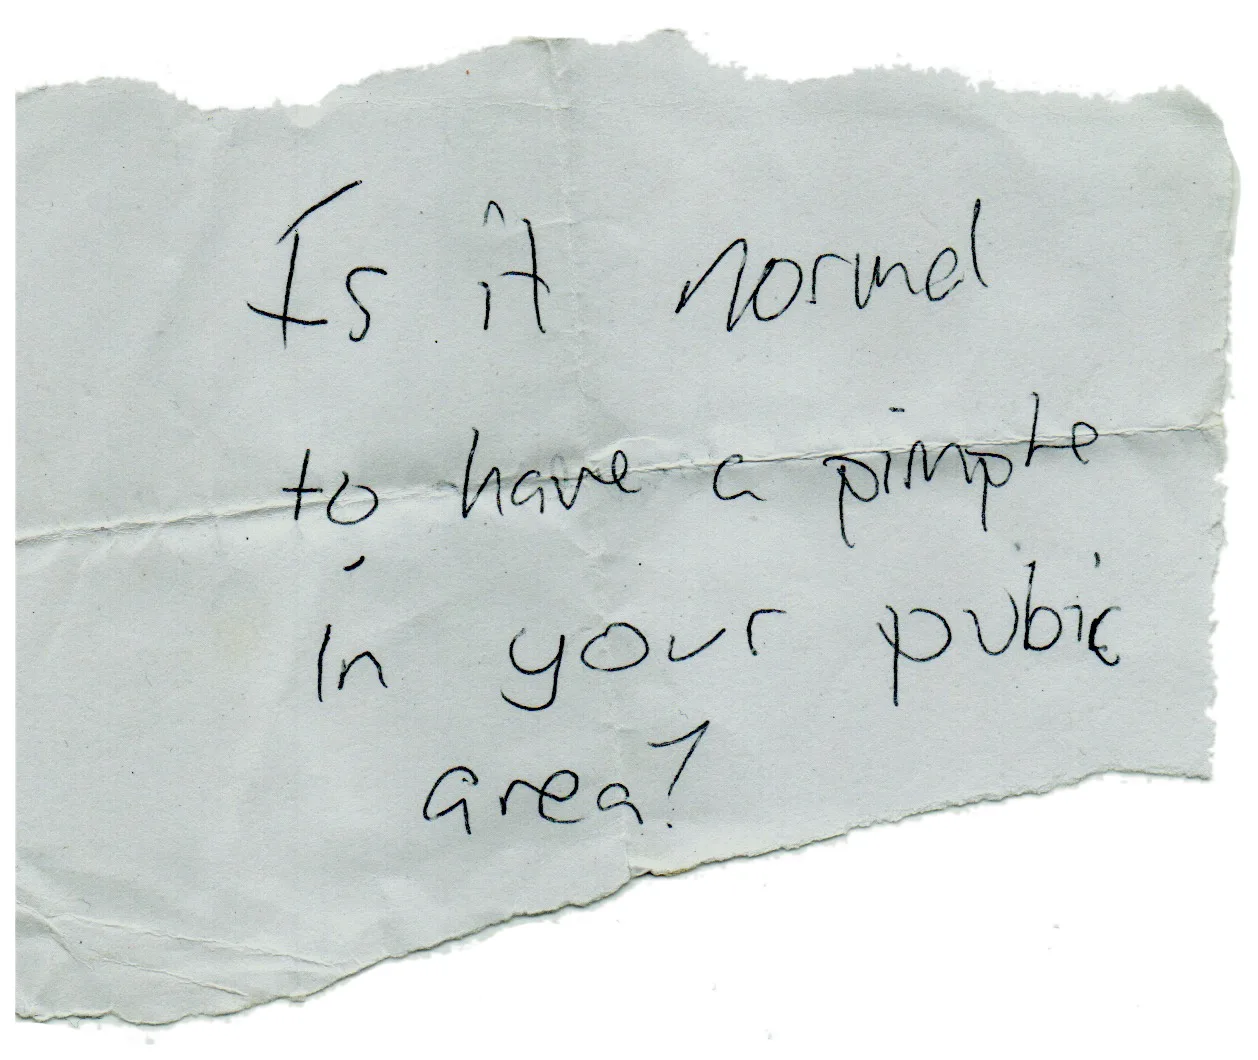 Is it normal
to have a pimple
in your pubic
area?